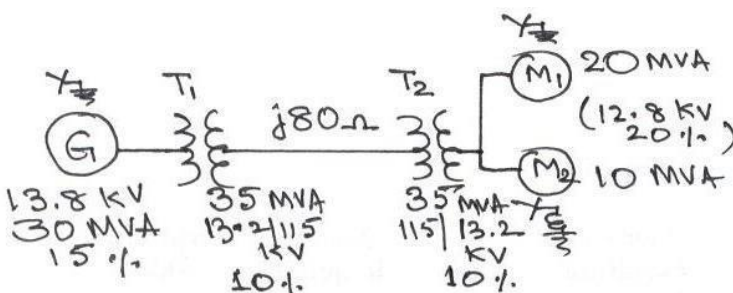 G
13.8 KV
30 MVA
15 %
T1
35 MVA
13.2/115
KV
10%
j80Ω
T2
35 MVA
115/13.2
KV
10%
M1
20 MVA
(12.8 KV
20%)
M2
10 MVA